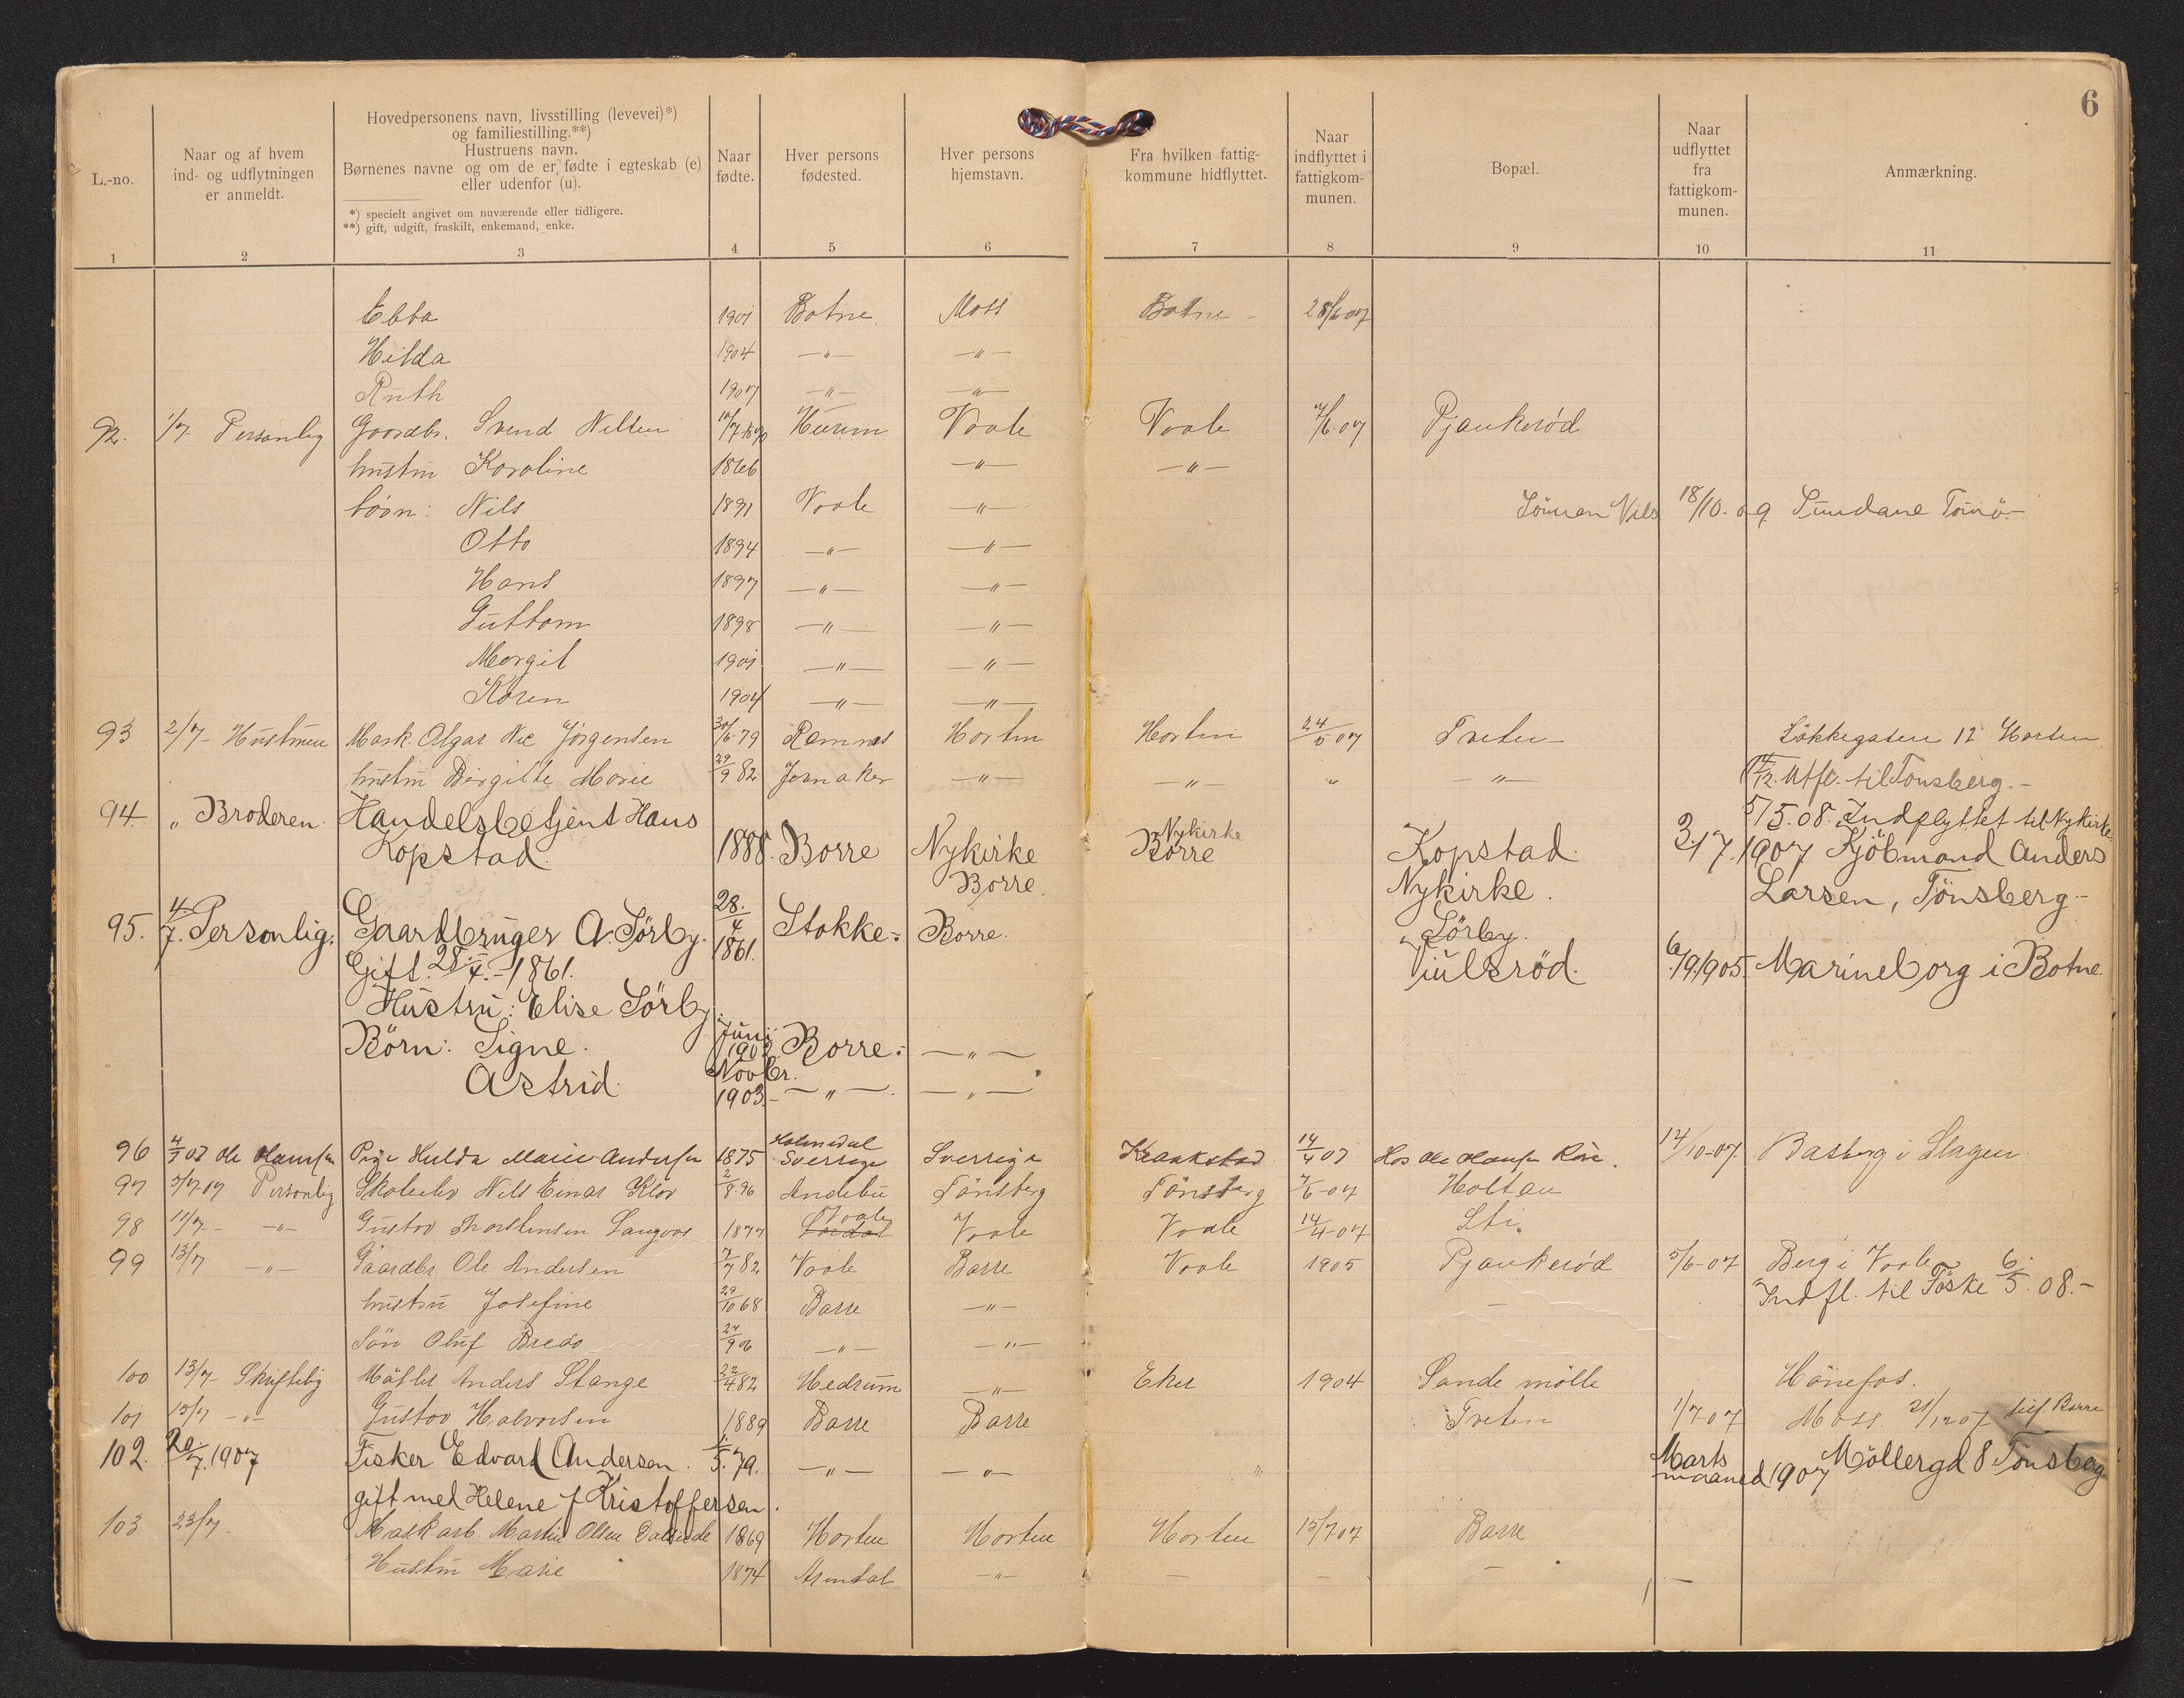 6
L.-no.
Naar og af hvem
ind- og udflytningen
er anmeldt.
Hovedpersonens navn, livsstilling (levevei)*)
og familiestilling.**)
Hustruens navn.
Børnenes navne og om de er fødte i egteskab (e)
eller udenfor (u).
*) specielt angivet om nuværende eller tidligere.
**) gift, ugift, fraskilt, enkemand, enke.
Naar
fødte.
Hver persons
fødested.
Hver persons
hjemstavn.
Fra hvilken fattig-
kommune hidflyttet.
Naar
indflyttet i
fattigkom-
munen.
Bopæl.
Naar
udflyttet
fra
fattigkom-
munen.
Anmærkning.
1 2 3 4 5 6 7 8 9 10 11
Ebba 1901 Botne Moss Botne - 28/6 07
Hilda 1904 -"- -"-
Ruth 1907 -"- -"-
92. 1/7 Personlig Gaardbr. Svend Nilsen Hurum Vaale Vaale /6-07 Pjaukerød
hustru Karoline 1866 -"- -"-
børn: Nils 1891 Vaale -"- Sönnen Nils 18/10. 09 Sundane Tömö-
Otto 1894 -"- -"-
Hans 1897 -"- -"-
Guttorm 1898 -"- -"-
Margit 1901 -"- -"-
Karen 1904 -"- -"-
93 2/7- Hustruen Mask. Olgar Nic Jörgensen 30/6-79 Ramnes Horten Horten 24/5 07 Tveten Lökkegaten 12 Horten
hustru Birgitte Marie 29/9 82 Jevnaker -"- -"- " -"- 14/12. Utfl. til Tønsberg.-
94 " Broderen. Handelsbetjent Hans 5/5.08. Indflyttet til Nykirke
Kopstad. 1888. Borre Nykirke Nykirke Borre Kopstad. 3/7. 1907 Kjöbmand Anders
Borre. Nykirke. Larsen, Tönsberg-
95. 4/7. Personlig. Gaardbruger A. Sörby. 28./4 1861. Stokke- Borre. Sörby.
Gift. 28/4.-1861. Viulsröd. 6/9.1905. Marineborg i Botne.
Hustru: Elise Sörby.
Börn: Signe. Juni 1902 Borre- -"-
Astrid. Novbr. 1903.- -"- -"-
96 4/7 07 Ole Olausen Pige Hulda Marie Andersen 1875 Holmedal Sverrige Sverrige Kraakstad 14/4 07 Hos Ole Olausen Röre. 14/10-07 Basberg i Slagen.
97 5/7-07 Personlig Skoleelev Nils Einar Kløv 2/8 96 Andebu Tönsberg Tönsberg 7/6-07 Holtan
98 11/7- -"- Gustav Thorstensen Langvas 1877 Vaale Vaale Vaale 14/4-07 Sti.
99 13/7 -"- Gaardbr. Ole Andersen 7/7 82 Vaale Barre Vaale 1905 Pjaukerød 5/6-07 Berg i Vaale
hustru Josefine 29/10 68 Barre -"- - Indfl. til Töske 6/5. 08.-
Sön Oluf Bredo 24/9 06 -"- -"-
100 13/7- Skriftelig Møller Anders Stange 22/4 82 Hedrum -"- Eker 1904 Sande mölle Hönefos.
101 15/7 -"- Gustav Halvorsen 1889 Barre Barre Tveten 1/7-07 Moss. 21/12 07 Borre
102. 20./7.1907 Fisker Edvard Andersen. 1/5.79. -"- -"- " Marts maaned 1907 Möllergd 8 Tönsberg
gift med Helene f Kristoffersen.
103 23/7- Maskarb. Martin Olsen 1869 Horten Horten Horten 15/7 07 Barre
Hustru Marie 1874 Arendal -"- - - - -